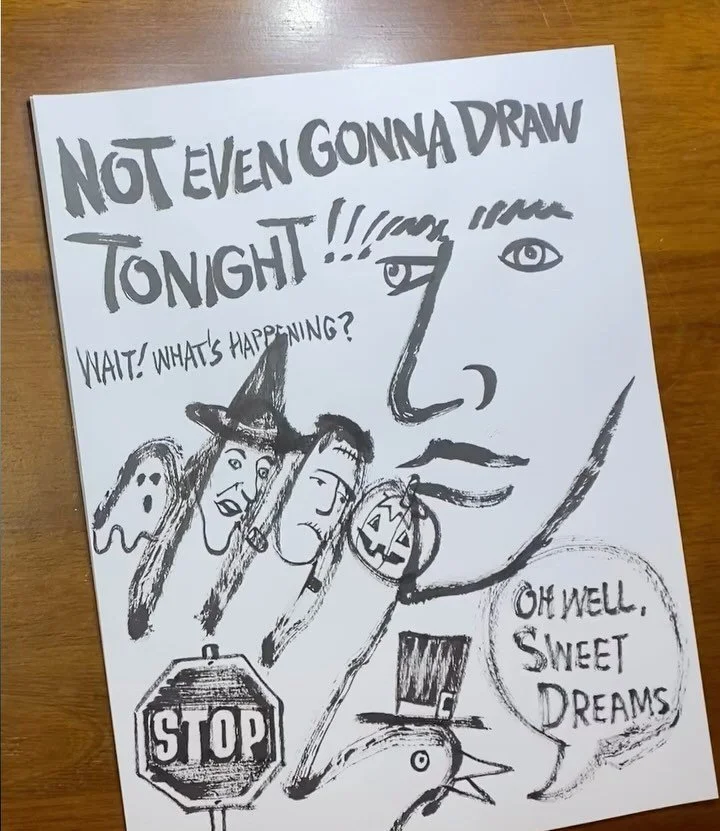 NOT EVEN GONNA DRAW
TONIGHT!!!
WAIT! WHAT'S HAPPENING?
STOP
OH WELL,
SWEET
DREAMS